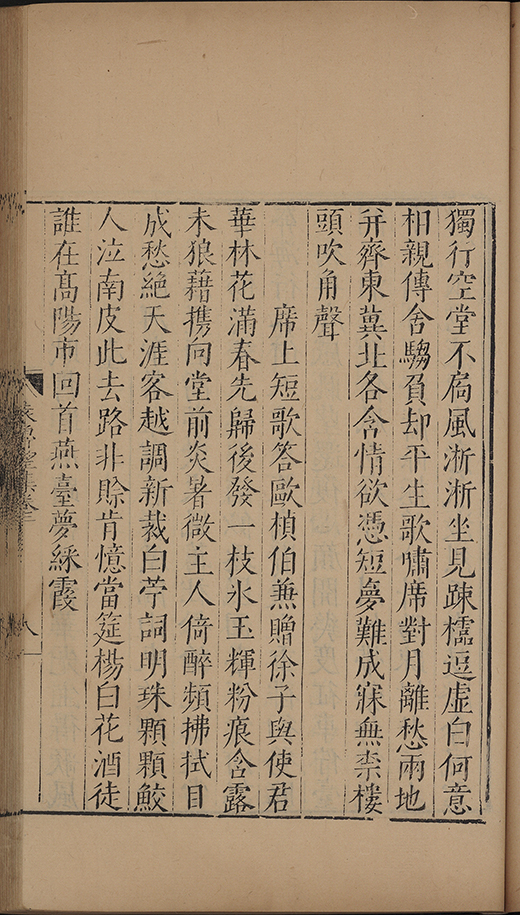 獨行空堂不扃風淅淅坐見踈櫺逗虛白何意
相親傳舍驂負却平生歌嘯席對月離愁兩地
并齊東冀北各含情欲憑短夢難成寐無柰樓
頭吹角聲
席上短歌答歐楨伯蒹贈徐子與使君
華林花滿春先歸後發一枝氷玉輝粉痕含露
未狼藉携向堂前炎暑微主人倚醉頻拂拭目
成愁絕天涯客越調新裁白苧詞明珠顆顆鮫
人泣南皮此去路非賖肯憶當筵楊白花酒徒
誰在髙陽市回首燕臺夢綵霞
卷三
八